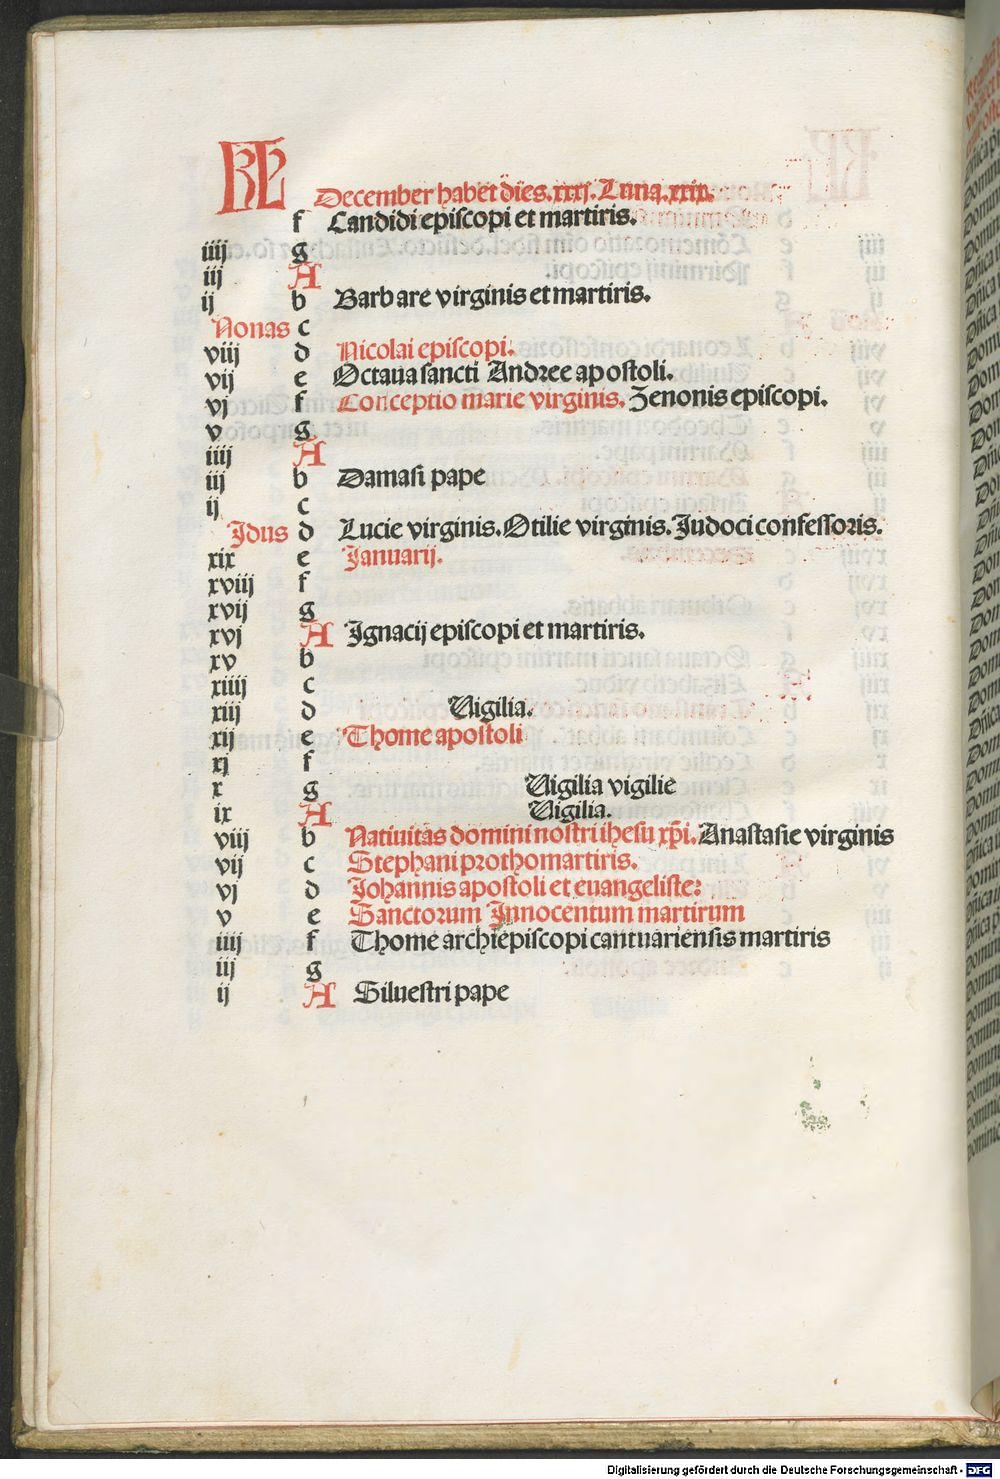 KL December habet dies.xxxj.Luna.xxix.
f Candidi episcopi et martiris.
iiij g
iij A
ij b Barbare virginis et martiris.
Nonas c
viij d Nicolai episcopi.
vij e Octaua sancti Andree apostoli.
vj f Conceptio marie virginis. Zenonis episcopi.
v g
iiij A
iij b Damasi pape
ij c
Jdus d Lucie virginis.Otilie virginis.Judoci confessoris.
xix e Januarij.
xviij f
xvij g
xvj A Jgnacij episcopi et martiris.
xv b
xiiij c
xiij d Uigilia.
xij e Thome apostoli
xj f
x g Uigilia vigilie
ix A Uigilia.
viij b Natiuitas domini nostri ihesu xp̄i. Anastasie virginis
vij c Stephani prothomartiris.
vj d Johannis apostoli et euangeliste:
v e Sanctorum Jnnocentum martirum
iiij f Thome archiepiscopi cantuariensis martiris
iij g
ij A Siluestri pape
Digitalisierung gefördert durch die Deutsche Forschungsgemeinschaft - DFG